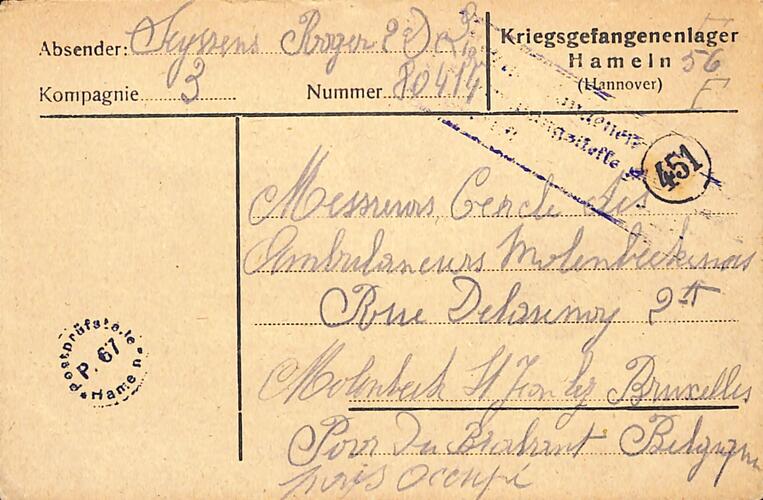 Absender: Feyssens Roger
Kompagnie 3 Nummer 80414
Kriegsgefangenenlager
Hameln 56
(Hannover) F
451
Messieurs Cercle des
Ambulanciers Molenbeekenois
Rue Delaunoy
Molenbeek St Jean lez Bruxelles
Prov du Brabant Belgique
pays occupé
Postprüfstelle
P. 67
* Hameln *